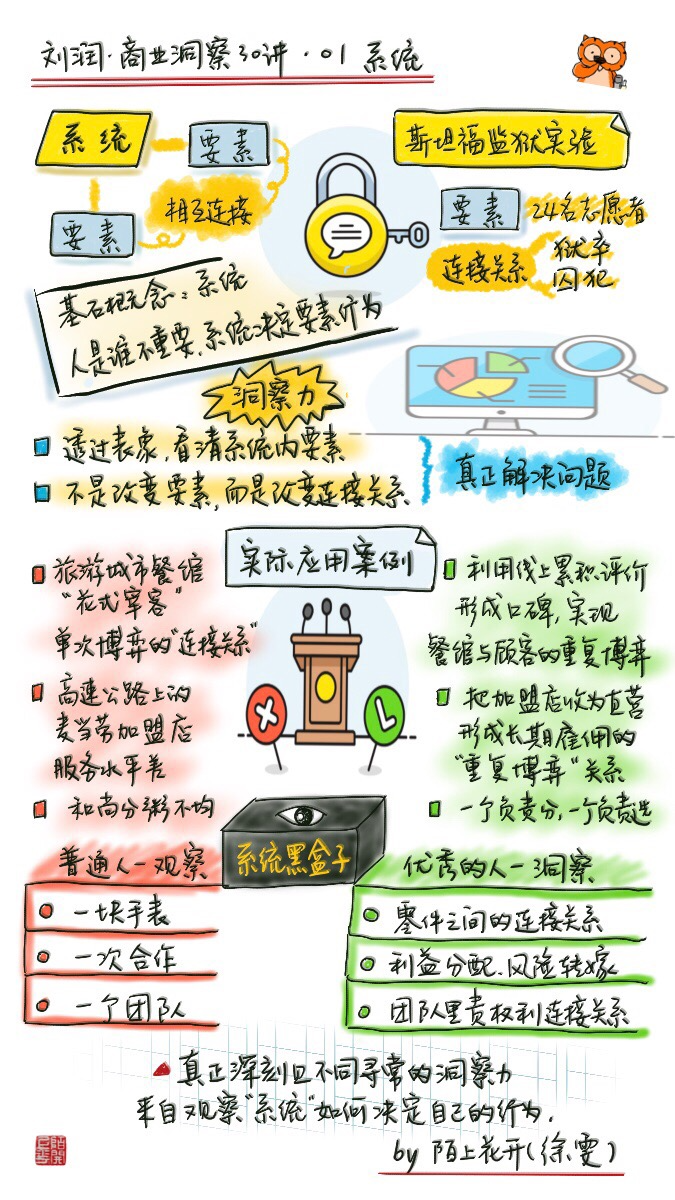 刘润·商业洞察30讲·01 系统
系统
要素
相互连接
要素
斯坦福监狱实验
要素
24名志愿者
连接关系
狱卒
囚犯
基石概念：系统
人是谁不重要，系统决定要素行为
洞察力
透过表象，看清系统内要素
不是改变要素，而是改变连接关系
真正解决问题
实际应用案例
旅游城市餐馆
“花式宰客”
单次博弈的“连接关系”
利用线上累积评价
形成口碑，实现
餐馆与顾客的重复博弈
高速公路上的
麦当劳加盟店
服务水平差
把加盟店收为直营
形成长期雇佣的
“重复博弈”关系
和尚分粥不均
一个负责分，一个负责选
系统黑盒子
普通人—观察
一块手表
一次合作
一个团队
优秀的人—洞察
零件之间的连接关系
利益分配、风险转嫁
团队里责权利连接关系
真正深刻且不同寻常的洞察力
来自观察“系统”如何决定自己的行为.
by 陌上花开(徐雯)